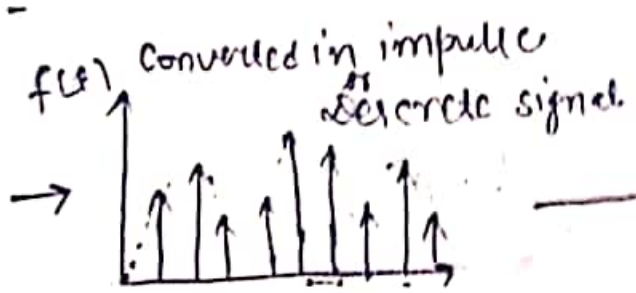 Converted in impulse
f(t) or
discrete signal.